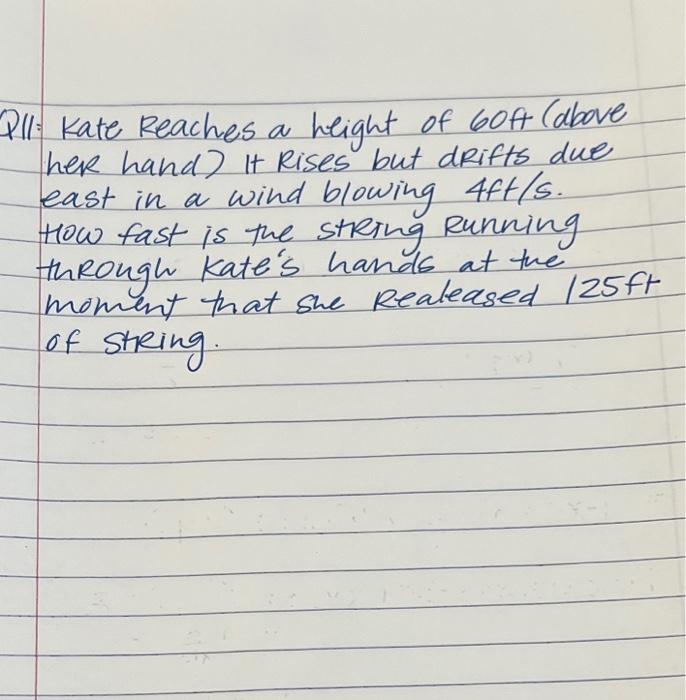 Q11: Kate Reaches a height of 60ft (above
her hand) It Rises but drifts due
east in a wind blowing 4ft/s.
How fast is the string Running
through Kate's hands at the
moment that she Realeased 125ft
of string.